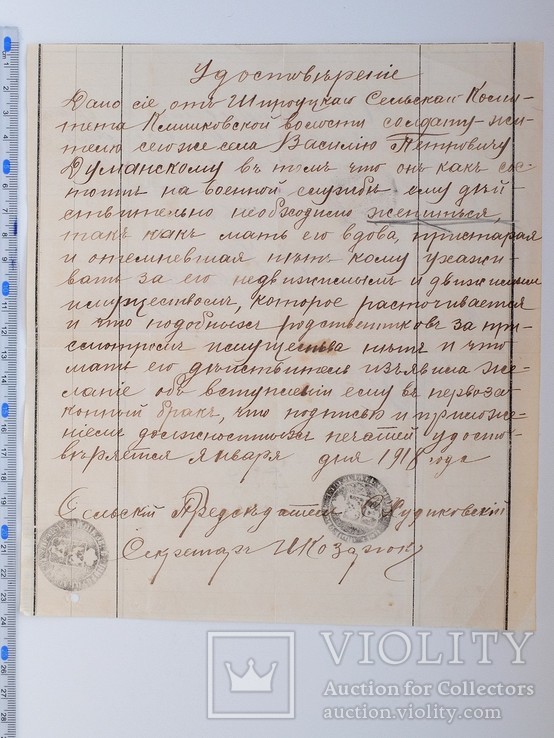 Удостовѣреніе
Дано сіе отъ Широуцкаго Сельскаго Коми-
тета Клишковской волости солдату-жи-
телю сего же села Василію Петровичу
Думанскому въ томъ что онъ какъ сос-
тоитъ на военной службѣ ему дѣй-
ствительно необходимо жениться,
такъ какъ мать его вдова, пристарая
и отемневшая нѣтъ кому ухажи-
вать за его недвижимымъ и движимымъ
имуществомъ, которое расточивается
и что подобныхъ родственниковъ за при-
смотромъ имущества нѣтъ и что
мать его дѣйствительно изъявила же-
ланіе объ вступленіи ему въ первоза-
конный бракъ, что подписью и приложе-
ніемъ должностныхъ печатей удосто-
вѣряется Января дня 1918 года
Сельскій Предсѣдатель Худиковскій
Секретарь И Козарюкъ
VIOLITY
Auction for Collectors
auction.violity.com